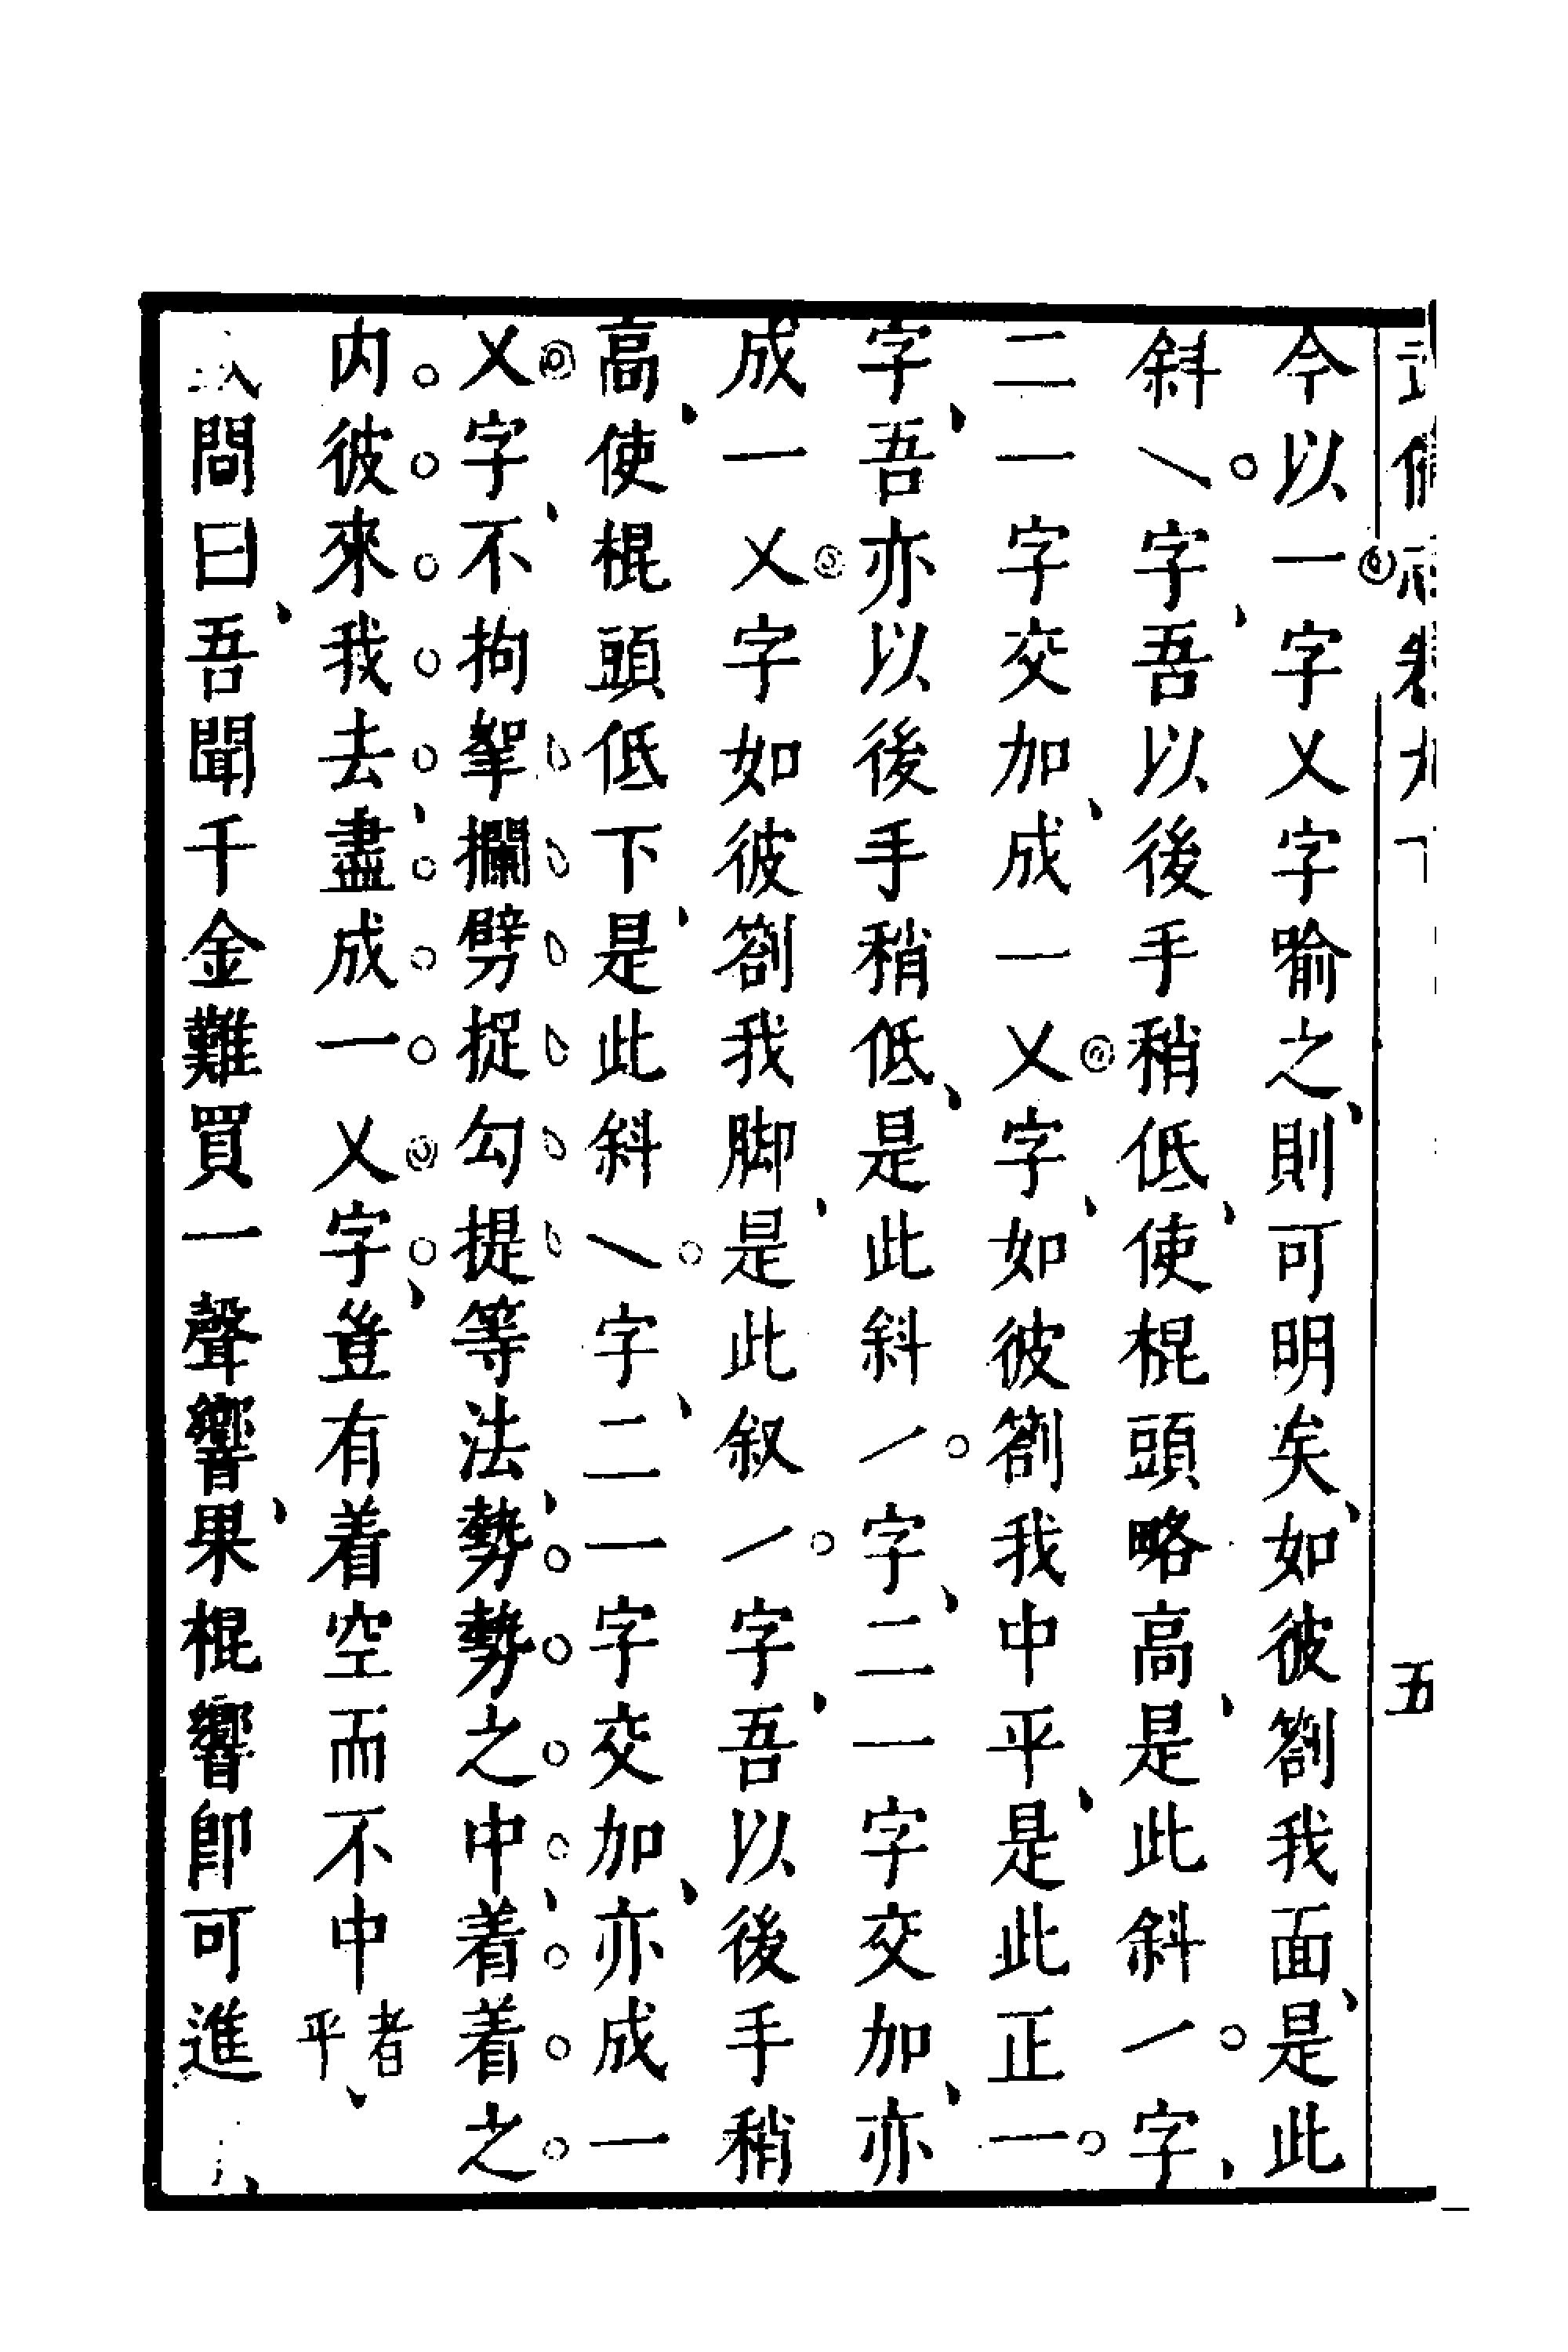 五
今以一字乂字喻之則可明矣如彼劄我面是此
斜㇏字吾以後手稍低使棍頭略高是此斜㇀字
二一字交加成一乂字如彼劄我中平是此正一
字吾亦以後手稍低是此斜㇀字二一字交加亦
成一乂字如彼劄我脚是此叙㇀字吾以後手稍
高使棍頭低下是此斜㇏字二一字交加亦成一
乂字不拘拏攔劈捉勾提等法勢勢之中着着之
内彼來我去盡成一乂字豈有着空而不中者平
問曰吾聞千金難買一聲響果棍響即可進